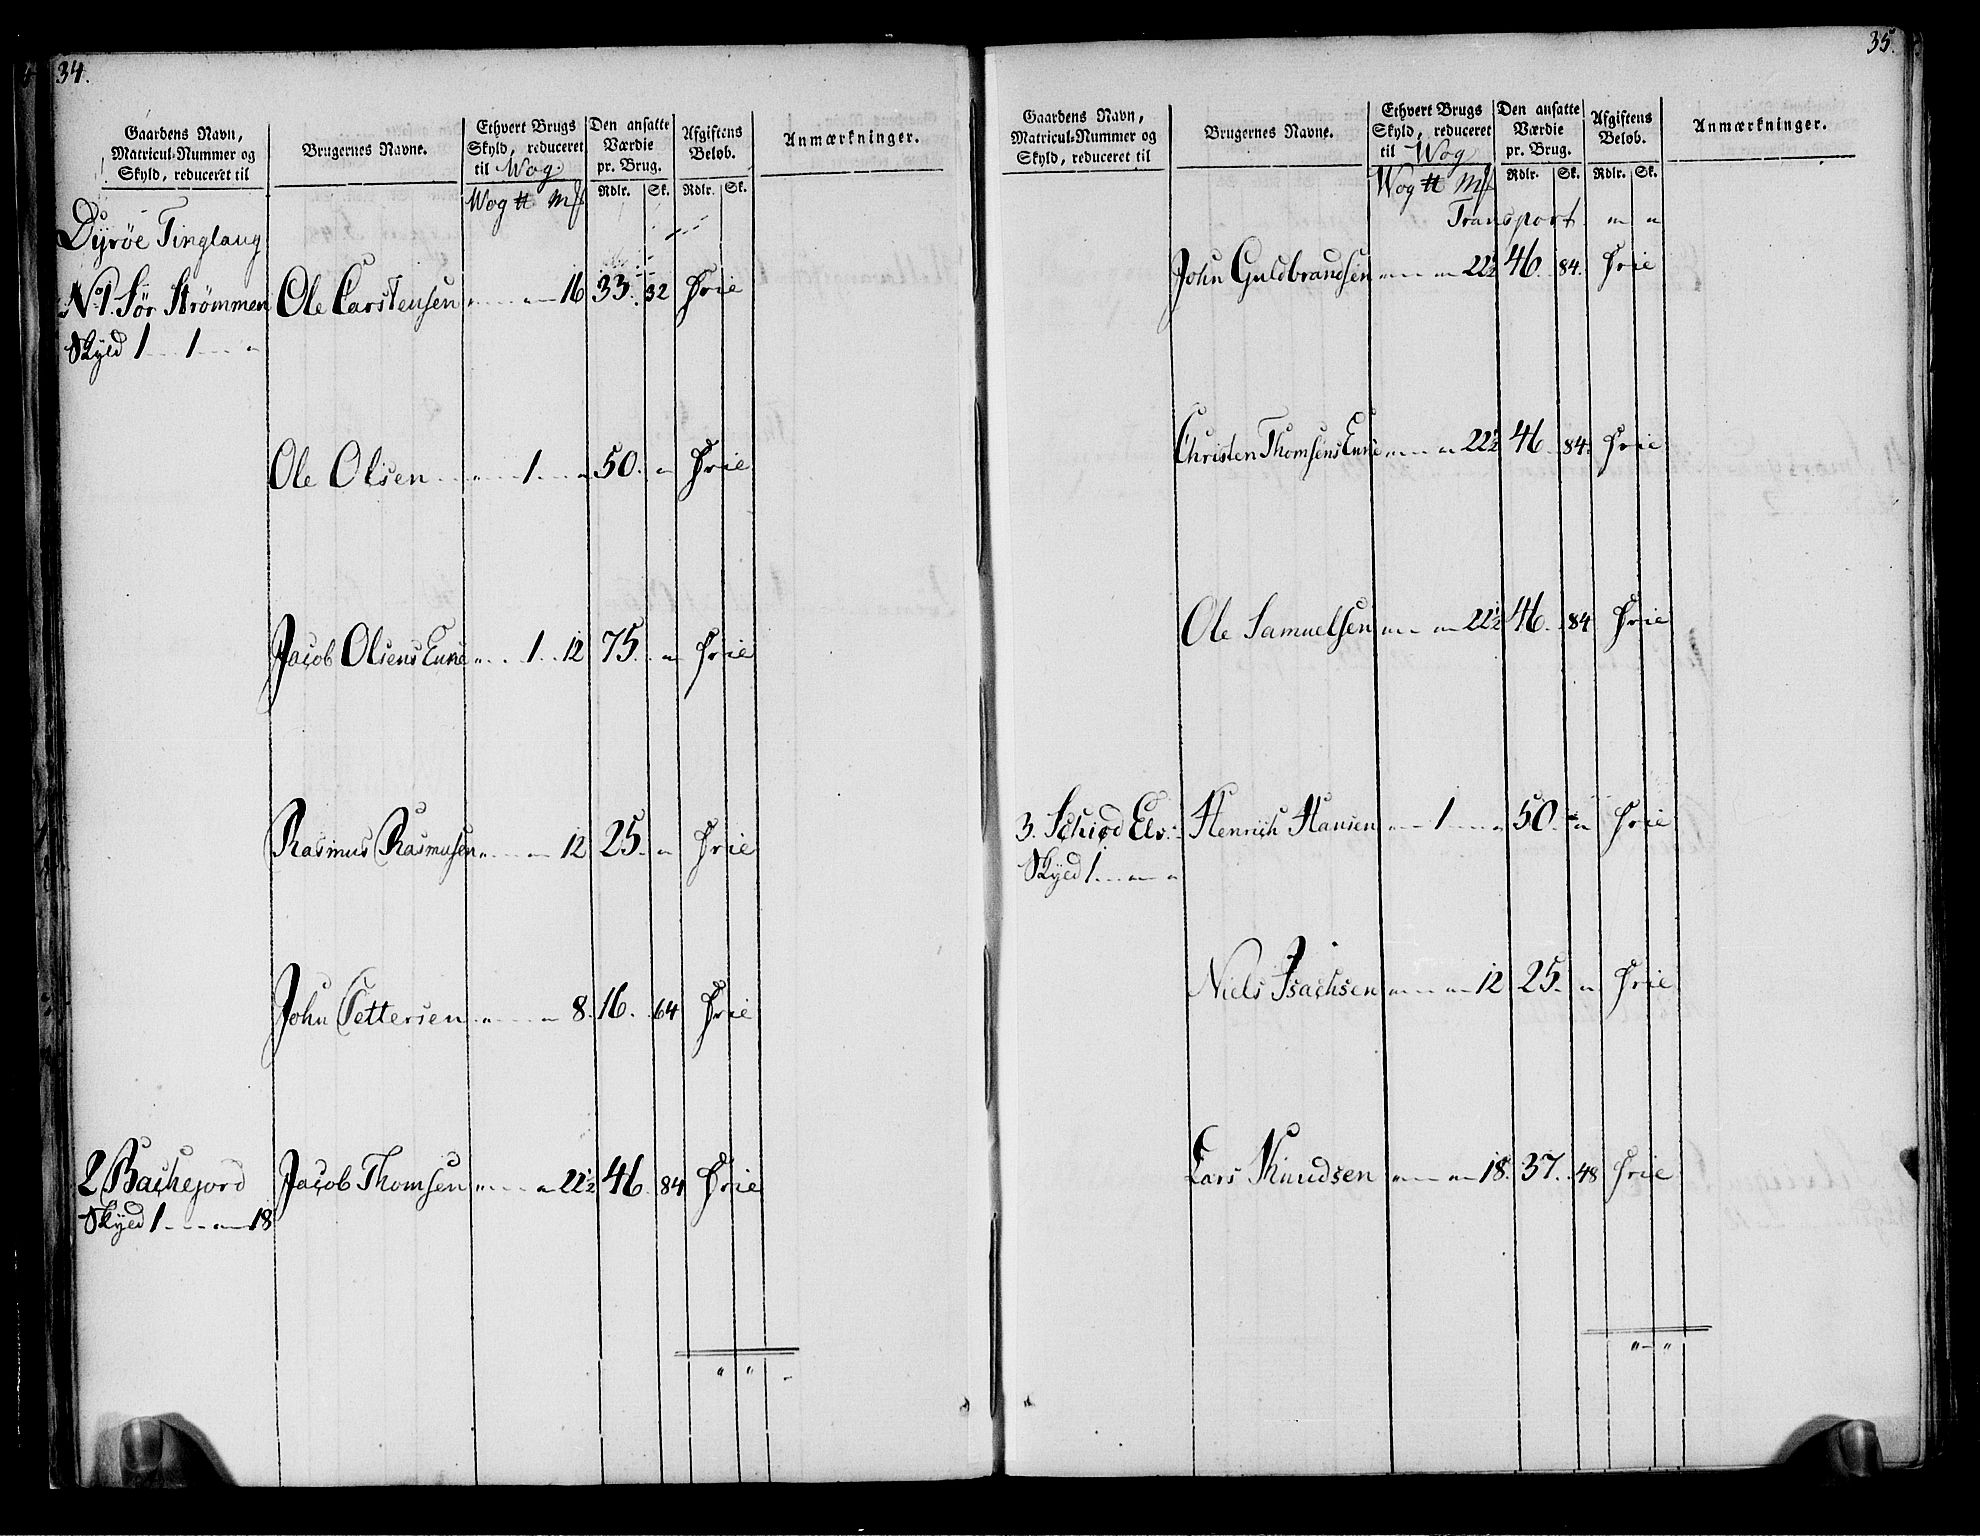 34.
Gaardens Navn, Matricul-Nummer og Skyld, reduceret til
Brugernes Navne.
Ethvert Brugs Skyld, reduceret til Wog
Den ansatte Værdie pr. Brug.
Afgiftens Beløb.
Anmærkninger.
Wog ℔ Mk Rdlr. Sk. Rdlr. Sk.
Dyrøe Tinglaug
No 1. Sør Strømmen Ole Carstensen " " 16 33. 32 Frie
Skyld 1 1 "
Ole Olsen " 1 " 50. " Frie
Jacob Olsens Enke " 1 12 75. " Frie
Rasmus Rasmusen " " 12 25. " Frie
John Pettersen " " 8. 16. 64 Frie
2 Backejord Jacob Thomsen " " 22½ 46. 84 Frie
Skyld 1 " 18
" "
35.
Gaardens Navn, Matricul-Nummer og Skyld, reduceret til
Brugernes Navne.
Ethvert Brugs Skyld, reduceret til Wog
Den ansatte Værdie pr. Brug.
Afgiftens Beløb.
Anmærkninger.
Wog ℔ Mk Rdlr. Sk. Rdlr. Sk.
Transport " "
John Guldbrandsen " " 22½ 46. 84. Frie
Christen Thomsens Enke " " 22½ 46. 84. Frie
Ole Samuelsen " " 22½ 46. 84 Frie
3. Schiød Elv Henrich Hansen " 1 " 50. " Frie
Skyld 1 " "
Niels Isachsen " " 12 25. " Frie
Lars Knudsen " " 18. 37. 48 Frie
" "